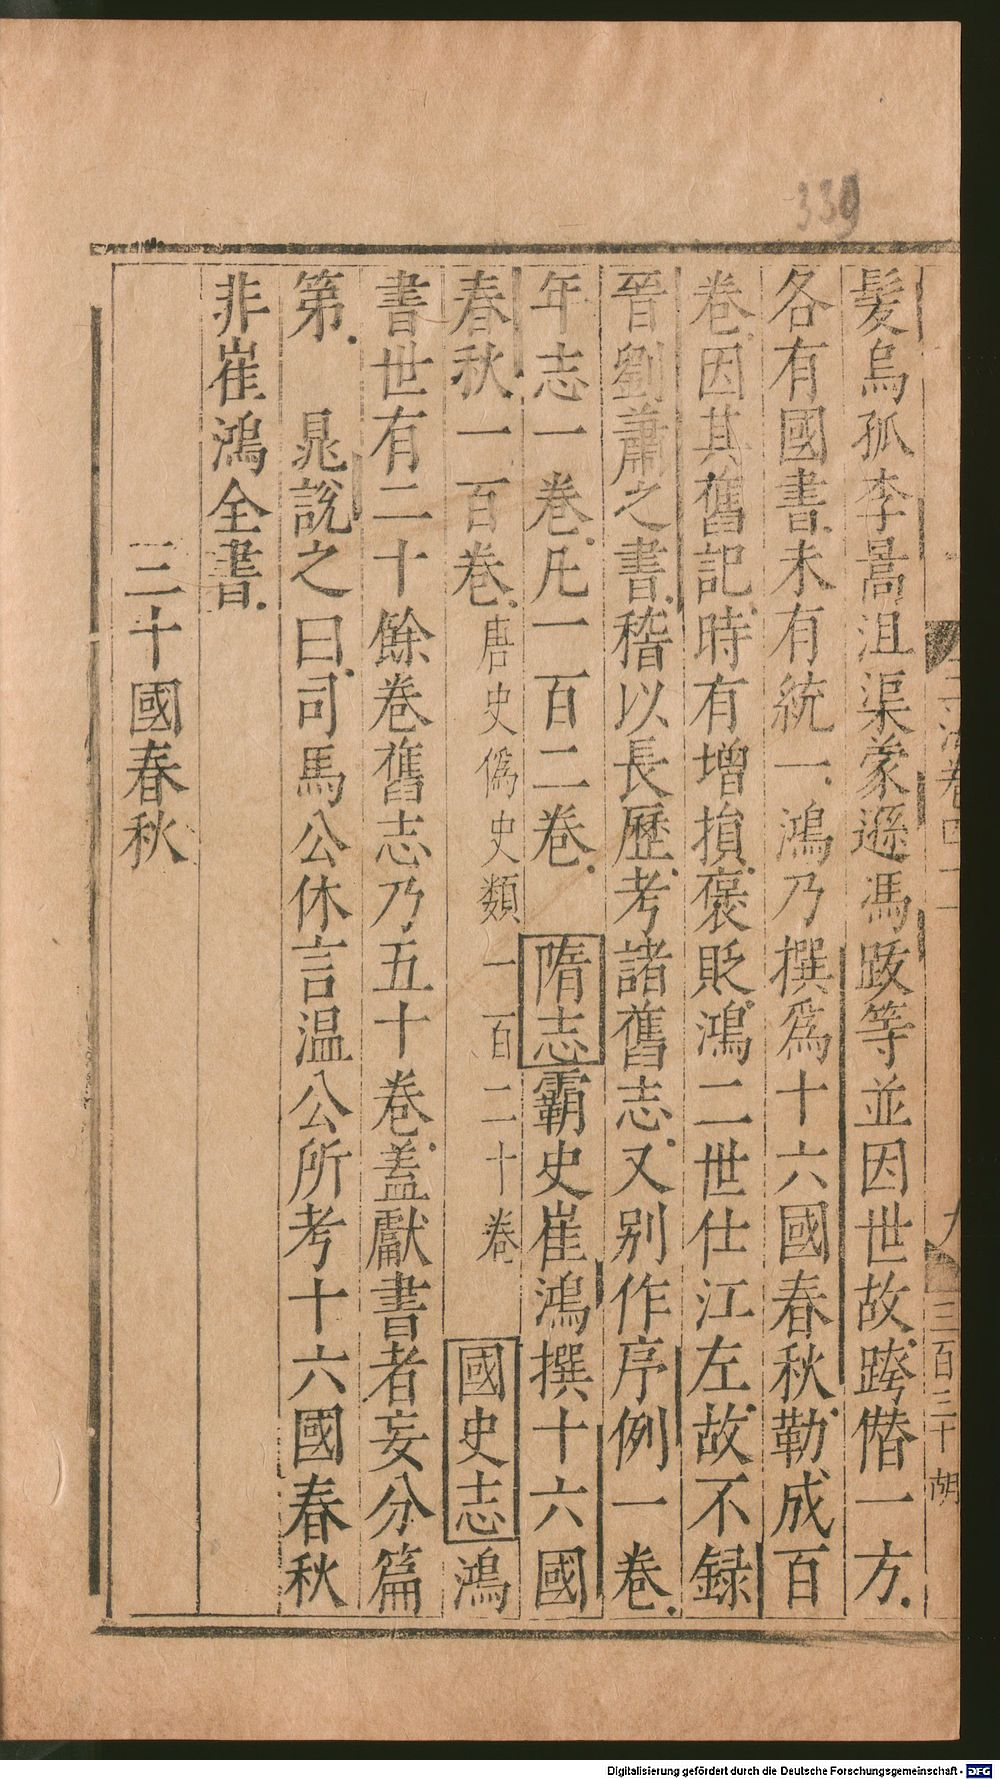 339
髮烏孤李暠沮渠蒙遜馮跋等並因世故跨僣一方
各有國書未有統一鴻乃撰爲十六國春秋勒成百
卷因其舊記時有增損褒貶鴻二世仕江左故不録
晉劉蕭之書稽以長歷考諸舊志又别作序例一卷
年志一卷凡一百二卷 隋志霸史崔鴻撰十六國
春秋一百卷唐史僞史類一百二十卷 國史志鴻
書世有二十餘卷舊志乃五十卷蓋獻書者妄分篇
第 晁說之曰司馬公休言温公所考十六國春秋
非崔鴻全書
三十國春秋
三百三十 胡
Digitalisierung gefördert durch die Deutsche Forschungsgemeinschaft - DFG